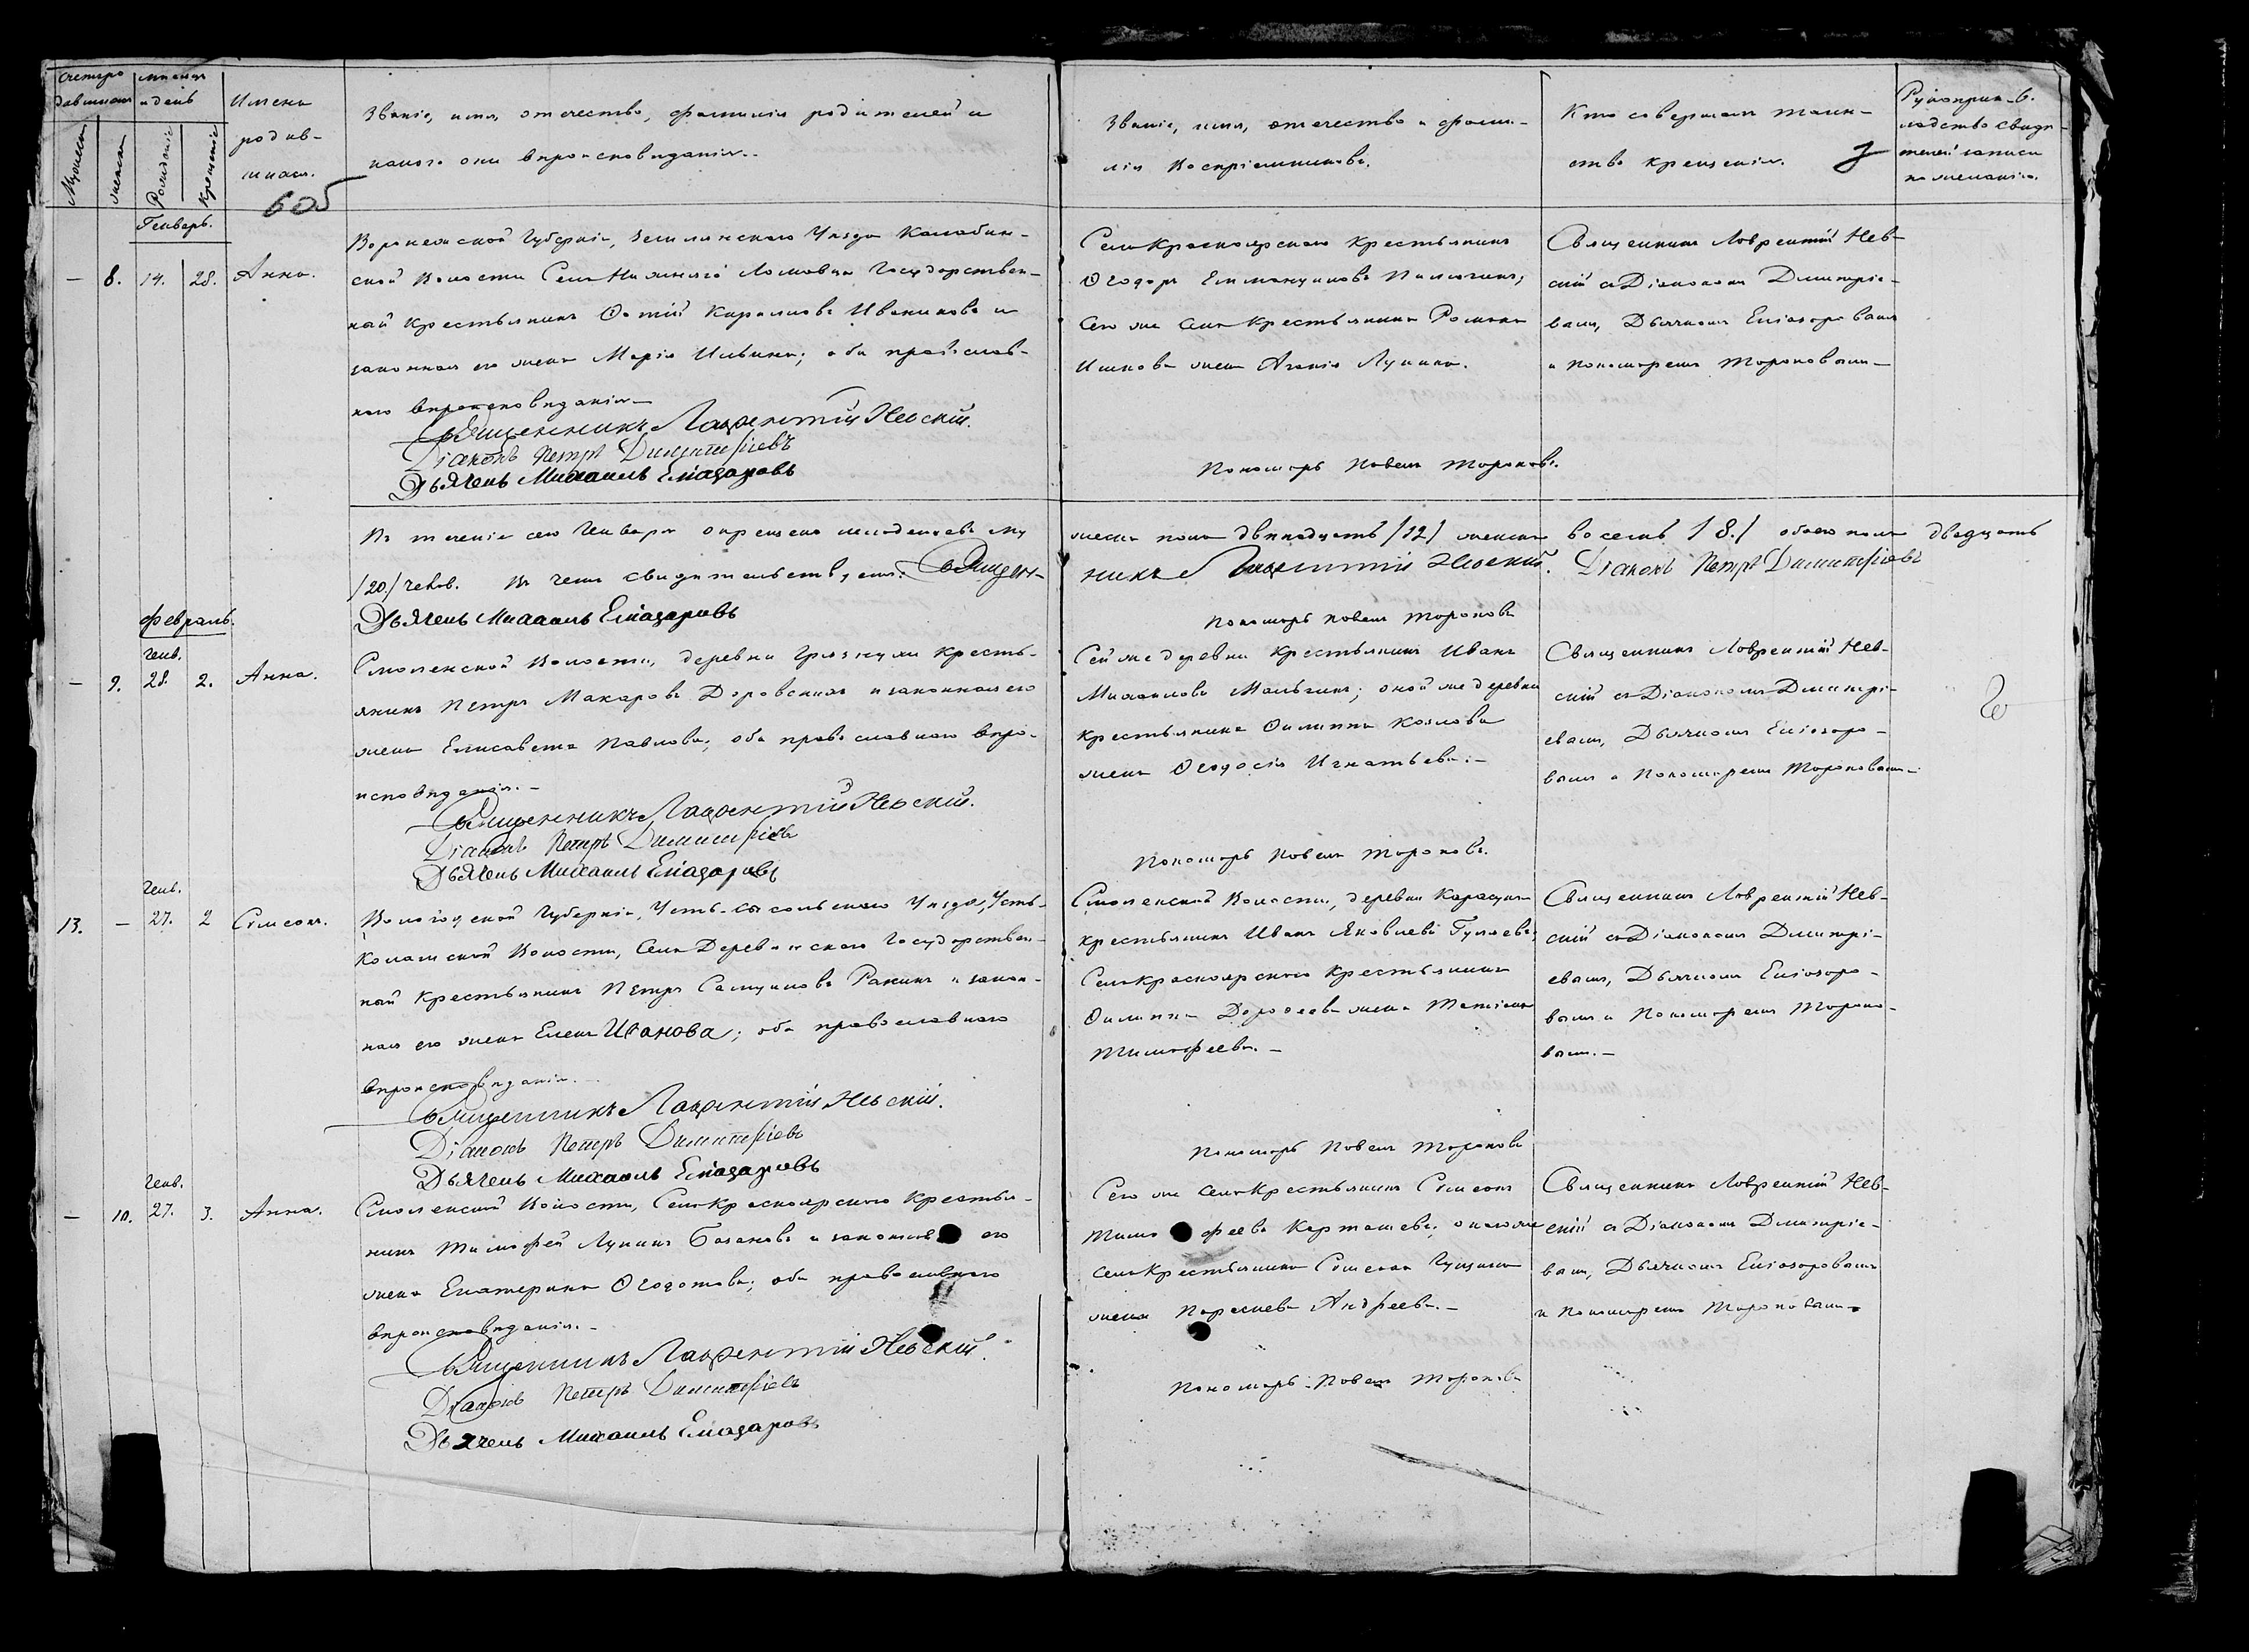 Счетъ ро
дившихся
Мужеска
женска
мѣсяцъ
и день
Рожденіе
Крещеніе
Имена
родив-
шихся.
605
Званіе, имя, отечество, фамилія родителей и
какого они вѣроисповѣданія.
Званіе, имя, отечество и фами-
лія Воспріемниковъ.
Кто совершалъ таин-
ство крещенія.
Рукоприк-
ладство свидѣ-
телей записи
по желанію.
Генварь.
— 8. 14. 28. Анна.
Воронежской Губерніи, Землянскаго Уѣзда Калабин-
ской Волости Села Нижняго Ломовца Государствен-
ный Крестьянинъ Фотій Кириловъ Иванниковъ и
законная его жена Марія Ильина; оба православ-
наго вѣроисповѣданія —
Священникъ Лаврентій Невскій.
Діаконъ Петръ Димитріевъ
Дьячекъ Михаилъ Еліазаровъ
Села Красноярскаго Крестьянинъ
Ѳедоръ Емельянов
Сего же села крестьянина Романа
жена Агапія Лукина.
Священникъ Лаврентій Нев-
скій съ Діакономъ Димитріе-
вымъ, Дьячкомъ Еліазаровымъ
и Пономаремъ Тороповымъ —
Пономарь Павелъ Тороповъ.
Въ теченіе сего Генваря окрещено младенцевъ му
жеска пола двѣнадцать /12/ женска восемь /8./ обоего пола двадцать
/20./ человѣкъ. Въ чемъ свидѣтельствуемъ: Священ-
никъ Лаврентій Невскій. Діаконъ Петръ Димитріевъ
Дьячекъ Михаилъ Еліазаровъ
Пономарь Павелъ Тороповъ
Февраль.
Генв.
— 9. 28. 2. Анна.
Смоленской Волости, деревни Грязнухи Кресть-
янинъ Петръ Макаровъ Доровскихъ и законная его
жена Елисавета Павлова; оба православнаго вѣро-
исповѣданія. —
Священникъ Лаврентій Невскій.
Діаконъ Петръ Димитріевъ
Дьячекъ Михаилъ Еліазаровъ
Сей же деревни Крестьянинъ Иванъ
Михаиловъ Мальгинъ; оной же деревни
Крестьянина Филиппа Козлова
жена Ѳеодосія Игнатьева. —
Священникъ Лаврентій Нев-
скій съ Діакономъ Димитрі-
евымъ, Дьячкомъ Еліазаро-
вымъ и Пономаремъ Тороповымъ. —
Пономарь Павелъ Тороповъ.
Генв.
13. — 27. 2 Сѵмеонъ.
Вологодской Губерніи, Усть-Сысольскаго Уѣзда, Усть-
Коломской Волости, Села Деревянскаго Государствен-
ный Крестьянинъ Петръ Самуиловъ Ракинъ и закон-
ная его жена Елена Иванова; оба православнаго
вѣроисповѣданія. —
Священникъ Лаврентій Невскій.
Діаконъ Петръ Димитріевъ
Дьячекъ Михаилъ Еліазаровъ
Смоленской Волости, деревни
крестьянинъ Иванъ Яковлевъ Гуляевъ;
Села Красноярскаго Крестьянина
Филиппа Дороѳеева жена Татіана
Тимофеева. —
Священникъ Лаврентій Нев-
скій съ Діакономъ Димитрі-
евымъ, Дьячкомъ Еліазаро-
вымъ и Пономаремъ Торопо-
вымъ. —
Пономарь Павелъ Тороповъ
Генв.
— 10. 27. 3. Анна.
Смоленской Волости, Села Красноярскаго Крестья-
нинъ Тимофей Лукинъ Казановъ и законная его
жена Екатерина Ѳедотова; оба православнаго
вѣроисповѣданія. —
Священникъ Лаврентій Невскій.
Діаконъ Петръ Димитріевъ
Дьячекъ Михаилъ Еліазаровъ
Сего же села Крестьянинъ Сѵмеонъ
Тимофеевъ Карташевъ; онаго же
села Крестьянина Сѵмеона
жена Параскева Андреева. —
Священникъ Лаврентій Нев-
скій съ Діакономъ Димитріе-
вымъ, Дьячкомъ Еліазаровымъ
и Пономаремъ Тороповымъ
Пономарь Павелъ Тороповъ